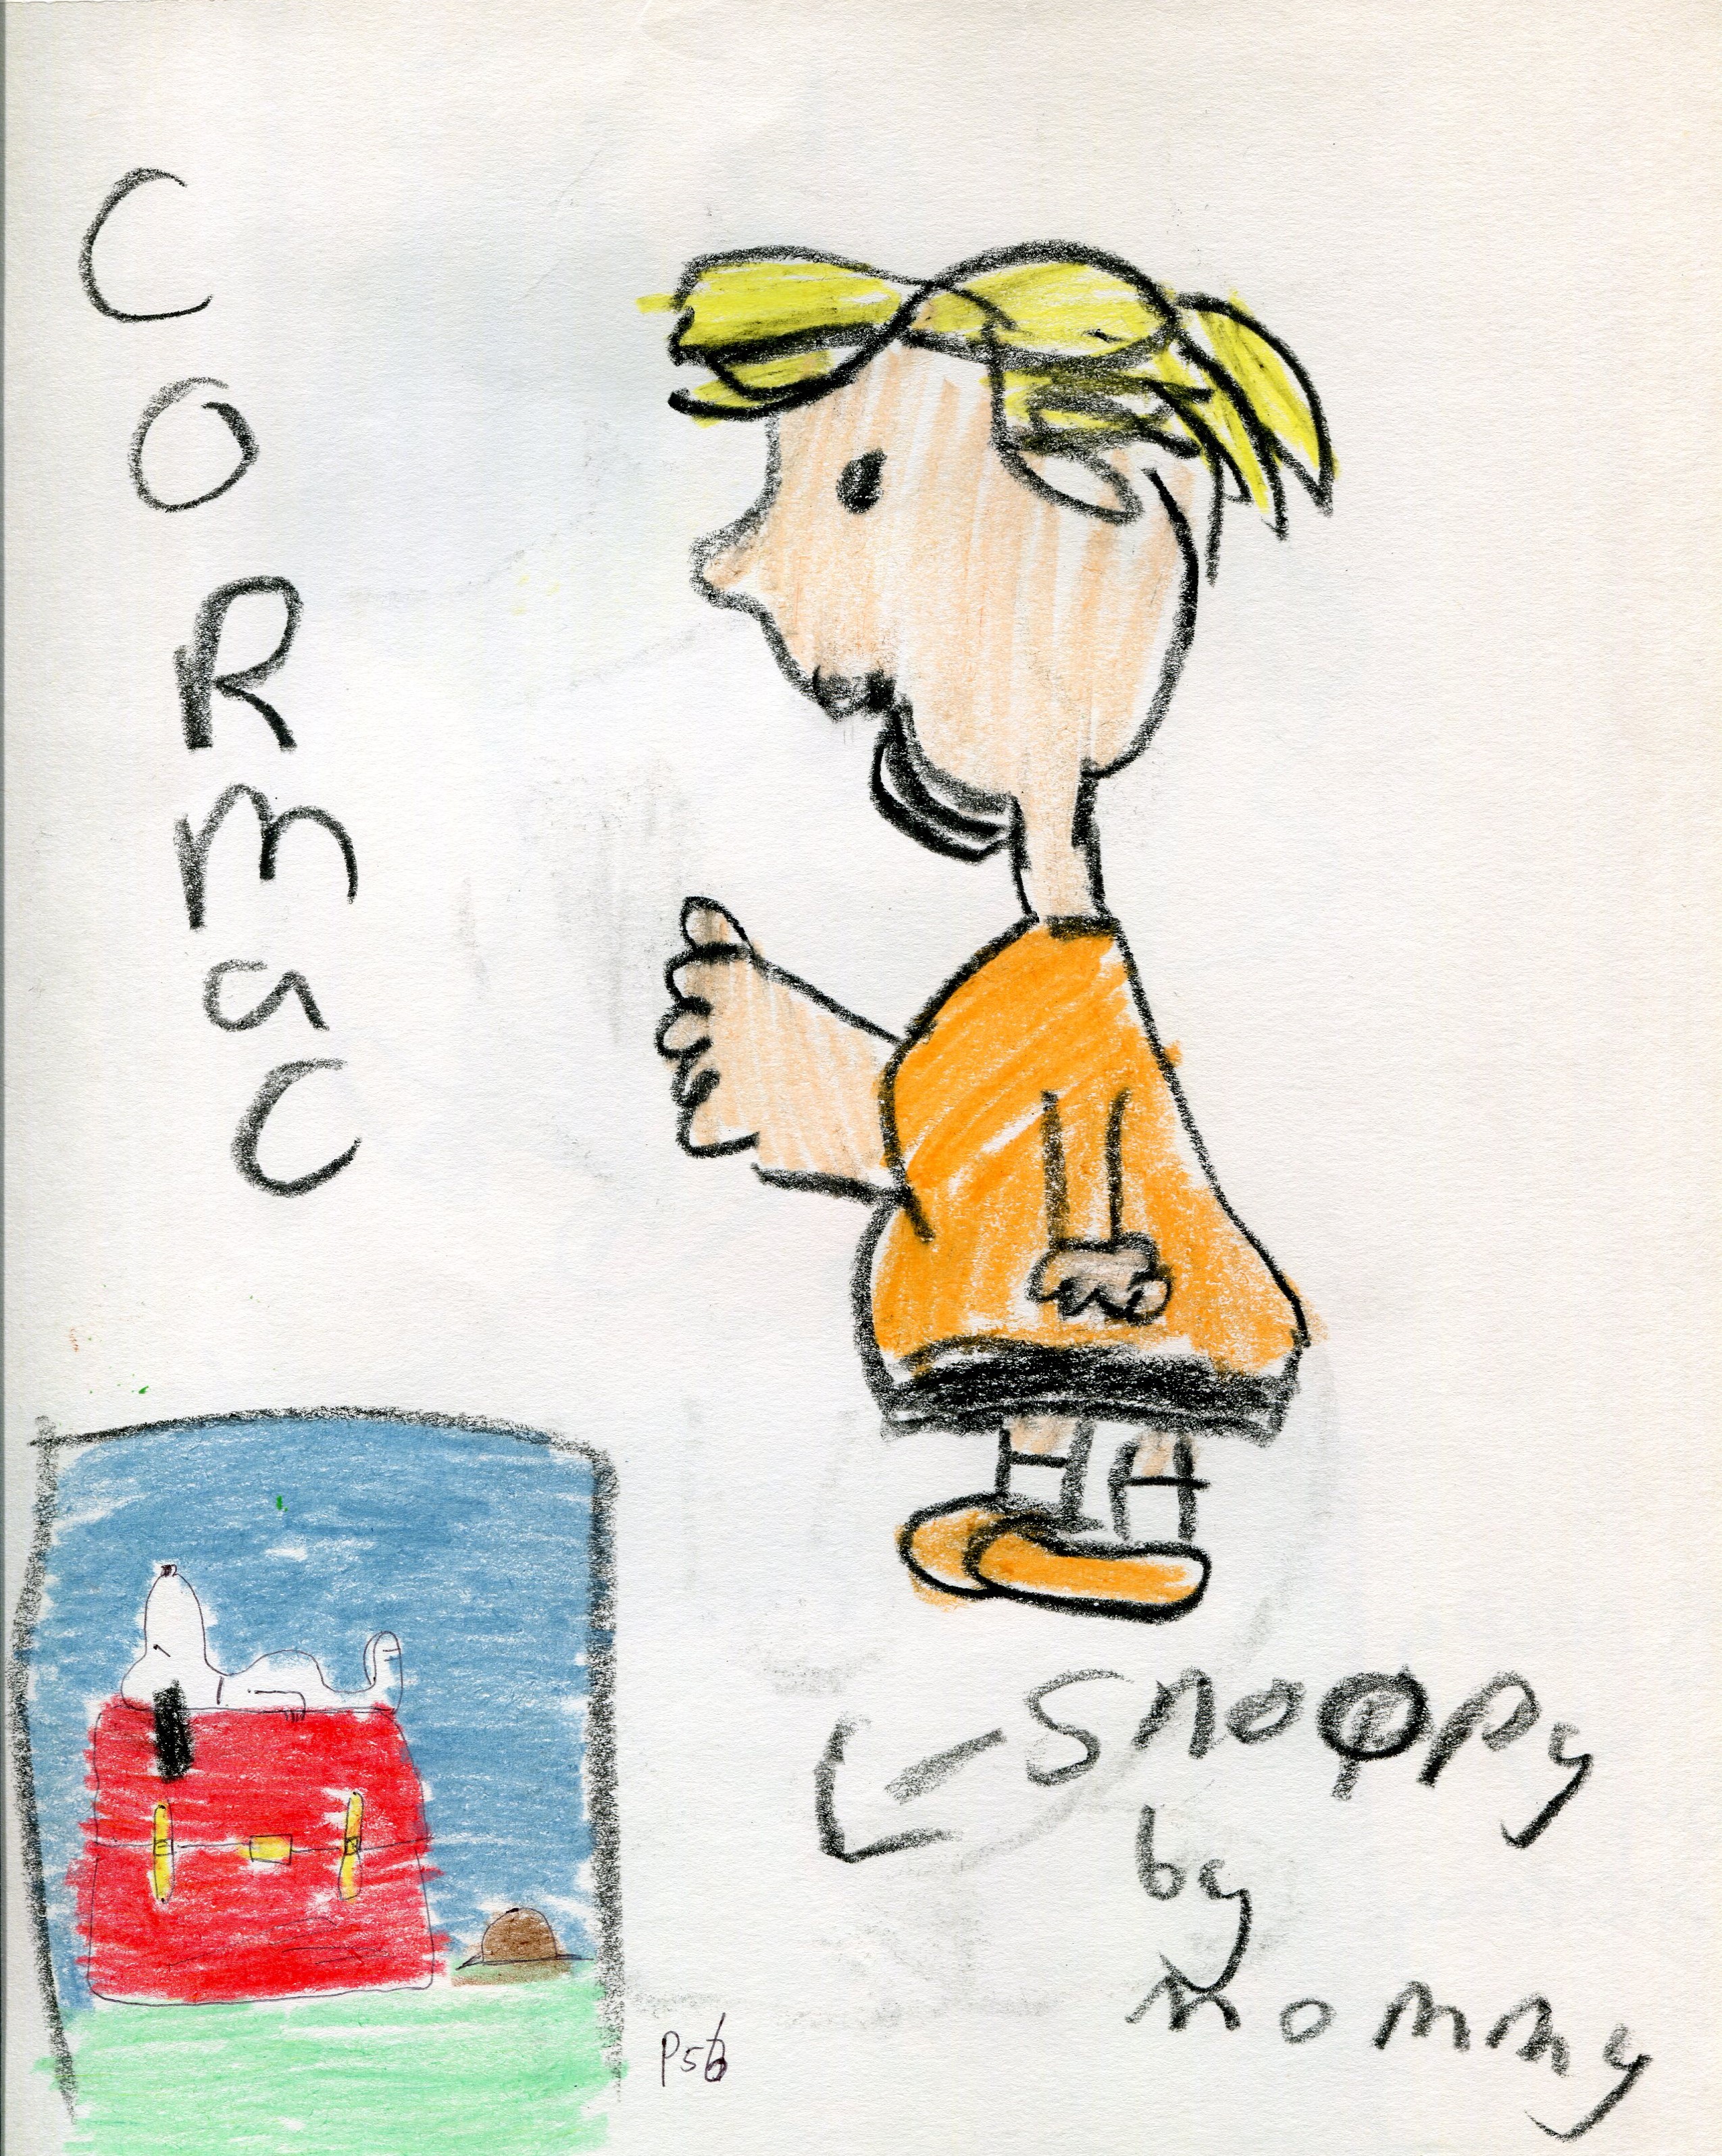 CoRmac
Snoopy
by
mommy